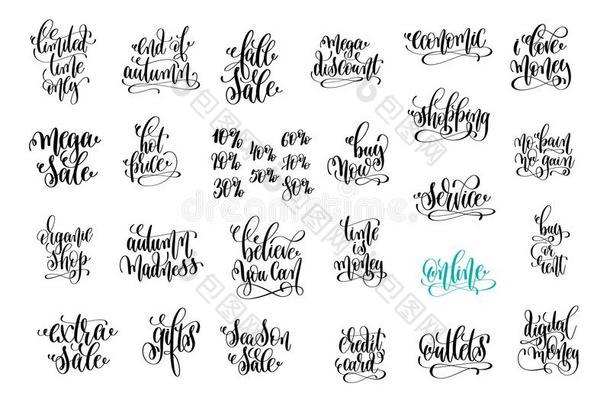 limited
time
only
end of
autumn
fall
sale
mega
discount
economic
i love
money
mega
sale
hot
price
10% 60%
20% 40% 70%
30% 50% 80%
buy
now
shopping
no pain
no gain
service
organic
shop
autumn
madness
believe
you can
time
is
money
online
buy
or
rent
extra
sale
gifts
season
sale
credit
card
outlets
digital
money
dreamstime